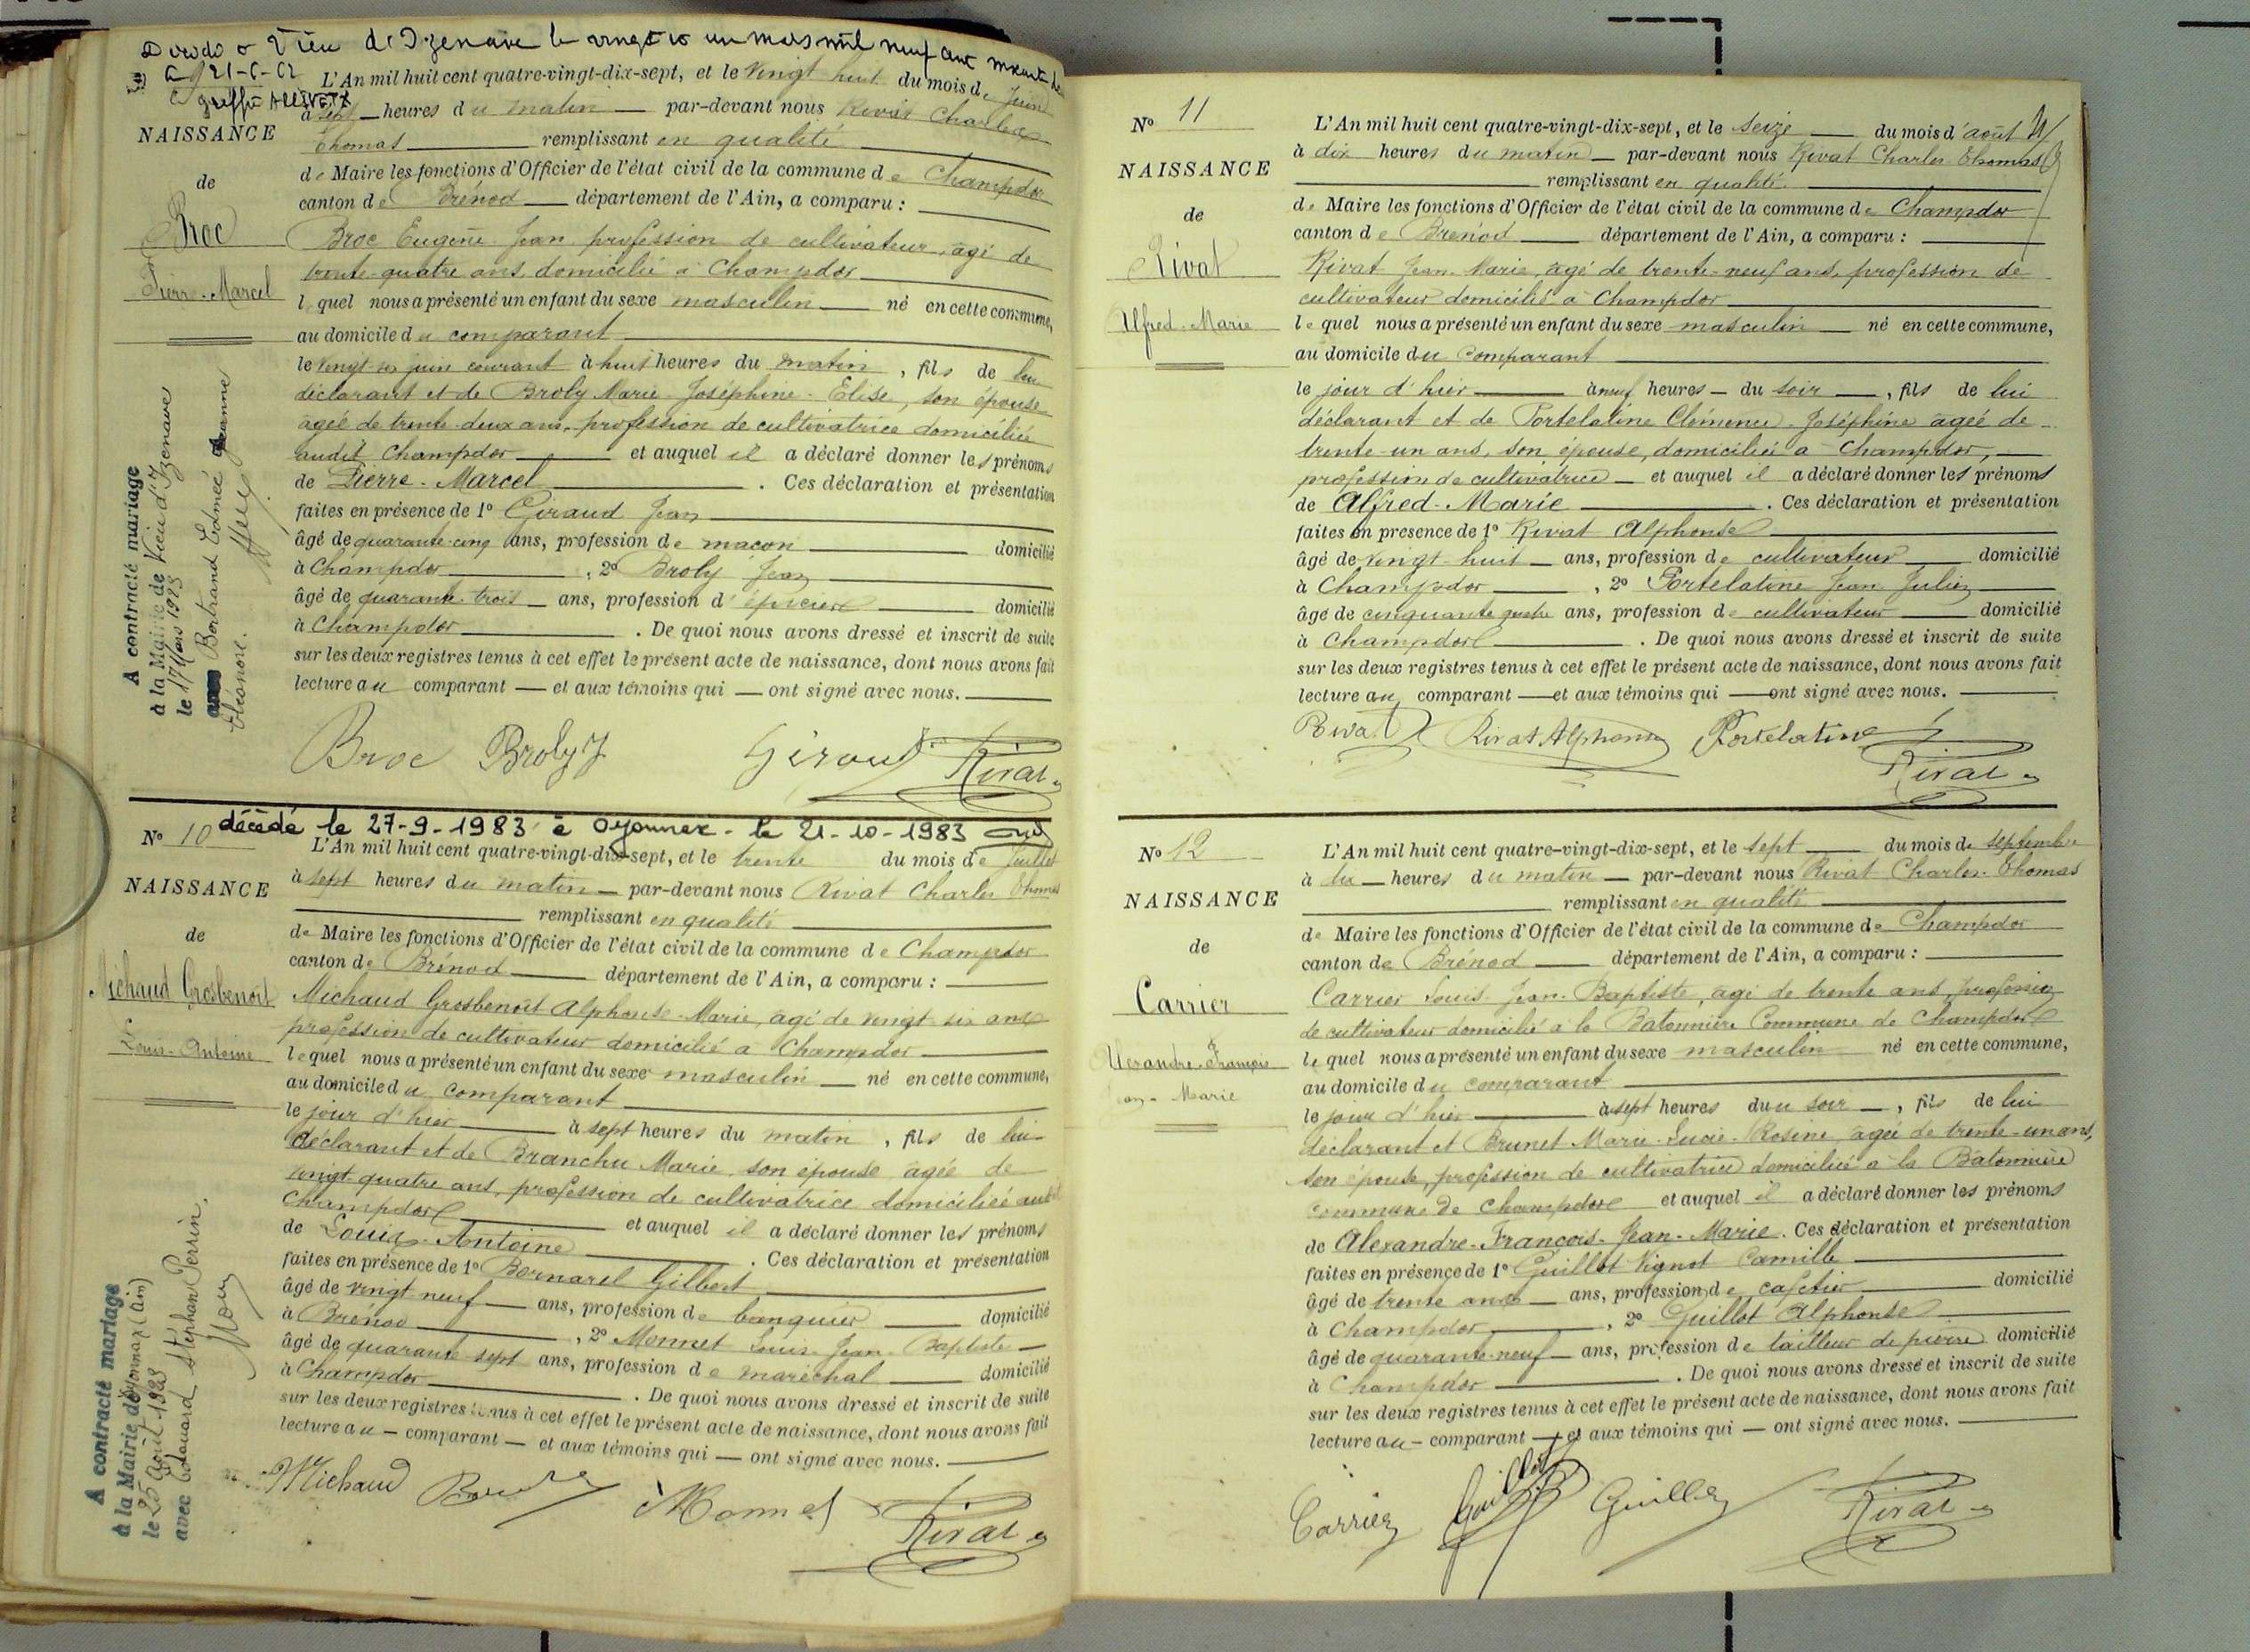 Décédé à Vieu d'Izenave le vingt et un mars mil neuf cent
21-6-62
greffe
L'An mil huit cent quatre-vingt-dix-sept, et le vingt huit du mois de Juin
à sept heures du matin par-devant nous Rivat Charles
NAISSANCE
Thomas remplissant en qualité
de Maire les fonctions d'Officier de l'état civil de la commune de Champdor
de
canton de Brénod département de l'Ain, a comparu :
Broc
Broc Eugène Jean profession de cultivateur, âgé de
trente-quatre ans domicilié à Champdor
Pierre-Marcel
lequel nous a présenté un enfant du sexe masculin né en cette commune,
au domicile du comparant
le vingt-six juin courant à huit heures du matin, fils de lui
déclarant et de Broly Marie-Joséphine-Elise, son épouse
âgée de trente-deux ans, profession de cultivatrice domiciliée
audit Champdor et auquel il a déclaré donner les prénoms
de Pierre-Marcel. Ces déclaration et présentation
faites en présence de 1° Giraud Jean
âgé de quarante-cinq ans, profession de maçon domicilié
à Champdor, 2° Broly Jean
âgé de quarante-trois ans, profession d'épicier domicilié
à Champdor. De quoi nous avons dressé et inscrit de suite
sur les deux registres tenus à cet effet le présent acte de naissance, dont nous avons fait
lecture au comparant et aux témoins qui ont signé avec nous.
A contracté mariage
à la Mairie de Vieu d'Izenave
le 17 Mars 1923
avec Bertrand Edmée Jeanne
Eléonore.
Broc Broly J Giraud Rivat
N° 10
décédé le 27-9-1983 à Oyonnax - le 21-10-1983
L'An mil huit cent quatre-vingt-dix-sept, et le trente du mois de Juillet
à sept heures du matin par-devant nous Rivat Charles Thomas
NAISSANCE
remplissant en qualité
de
de Maire les fonctions d'Officier de l'état civil de la commune de Champdor
canton de Brénod département de l'Ain, a comparu :
Michaud Grosbenoit
Michaud Grosbenoit Alphonse-Marie, âgé de vingt-six ans
profession de cultivateur domicilié à Champdor
Louis-Antoine
lequel nous a présenté un enfant du sexe masculin né en cette commune,
au domicile du comparant
le jour d'hier à sept heures du matin, fils de lui
déclarant et de Branchu Marie son épouse âgée de
vingt-quatre ans, profession de cultivatrice domiciliée audit
Champdor et auquel il a déclaré donner les prénoms
de Louis-Antoine. Ces déclaration et présentation
faites en présence de 1° Bornarel Gilbert
âgé de vingt neuf ans, profession de banquier domicilié
à Brénod, 2° Monnet Louis-Jean-Baptiste
âgé de quarante-sept ans, profession de maréchal domicilié
à Champdor. De quoi nous avons dressé et inscrit de suite
sur les deux registres tenus à cet effet le présent acte de naissance, dont nous avons fait
lecture au comparant et aux témoins qui ont signé avec nous.
A contracté mariage
à la Mairie de Oyonnax (Ain)
le 25 Août 1923
avec Edouard Stéphan Perrin.
Michaud Monnet Rivat
N° 11
L'An mil huit cent quatre-vingt-dix-sept, et le seize du mois d'août
à dix heures du matin par-devant nous Rivat Charles Thomas
NAISSANCE
remplissant en qualité
de
de Maire les fonctions d'Officier de l'état civil de la commune de Champdor
canton de Brénod département de l'Ain, a comparu :
Rivat
Rivat Jean-Marie, âgé de trente-neuf ans, profession de
cultivateur domicilié à Champdor
Alfred-Marie
lequel nous a présenté un enfant du sexe masculin né en cette commune,
au domicile du comparant
le jour d'hier à neuf heures du soir, fils de lui
déclarant et de Portelatine Clémence-Joséphine âgée de
trente-un ans, son épouse, domiciliée à Champdor,
profession de cultivatrice et auquel il a déclaré donner les prénoms
de Alfred-Marie. Ces déclaration et présentation
faites en présence de 1° Rivat Alphonse
âgé de vingt-huit ans, profession de cultivateur domicilié
à Champdor, 2° Portelatine Jean Julien
âgé de cinquante quatre ans, profession de cultivateur domicilié
à Champdor. De quoi nous avons dressé et inscrit de suite
sur les deux registres tenus à cet effet le présent acte de naissance, dont nous avons fait
lecture au comparant et aux témoins qui ont signé avec nous.
Rivat Rivat Alphonse Portelatine
Rivat
N° 12
L'An mil huit cent quatre-vingt-dix-sept, et le sept du mois de septembre
à dix heures du matin par-devant nous Rivat Charles-Thomas
NAISSANCE
remplissant en qualité
de
de Maire les fonctions d'Officier de l'état civil de la commune de Champdor
canton de Brénod département de l'Ain, a comparu :
Carrier
Carrier Louis-Jean-Baptiste, âgé de trente ans, profession
de cultivateur domicilié à la Batonnière Commune de Champdor
Alexandre-François
lequel nous a présenté un enfant du sexe masculin né en cette commune,
Jean-Marie
au domicile du comparant
le jour d'hier à sept heures du soir, fils de lui
déclarant et Brunet Marie-Lucie-Rosine, âgée de trente-un ans,
son épouse, profession de cultivatrice domiciliée à la Bâtonnière
commune de Champdor et auquel il a déclaré donner les prénoms
de Alexandre-François-Jean-Marie. Ces déclaration et présentation
faites en présence de 1° Guillot Vignot Camille
âgé de trente ans ans, profession de cafetier domicilié
à Champdor, 2° Guillot Alphonse
âgé de quarante-neuf ans, profession de tailleur de pierre domicilié
à Champdor. De quoi nous avons dressé et inscrit de suite
sur les deux registres tenus à cet effet le présent acte de naissance, dont nous avons fait
lecture au comparant et aux témoins qui ont signé avec nous.
Carrier Guillot Guillot Rivat